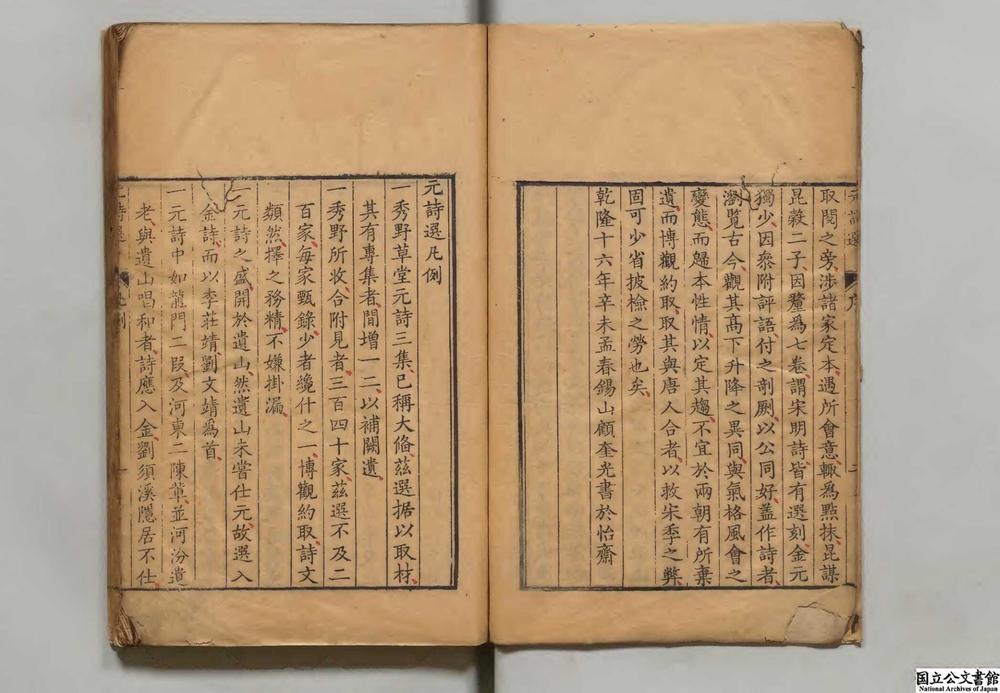 取閱之旁涉諸家定本遇所會意輙爲點抹昆謀
昆穀二子因釐爲七卷謂宋明詩皆有選刻金元
獨少因叅附評語付之剞劂以公同好葢作詩者
瀏覽古今觀其髙下升降之異同與氣格風會之
變態而歸本性情以定其趨不宜於兩朝有所棄
遺而博觀約取取其與唐人合者以救宋季之弊
固可少省披檢之勞也矣
乾隆十六年辛未孟春錫山顧奎光書於怡齋
元詩選凡例
一秀野草堂元詩三集已稱大俻茲選据以取材
其有專集者間增一二以補闕遺
一秀野所收合附見者三百四十家茲選不及二
百家每家甄錄少者纔什之一博觀約取詩文
類然擇之務精不嫌掛漏
一元詩之盛開於遺山然遺山未嘗仕元故選入
金詩而以李莊靖劉文靖爲首
一元詩中如龍門二段及河東二陳軰並河汾遺
老與遺山唱和者詩應入金劉須溪隱居不仕
国立公文書館
National Archives of Japan